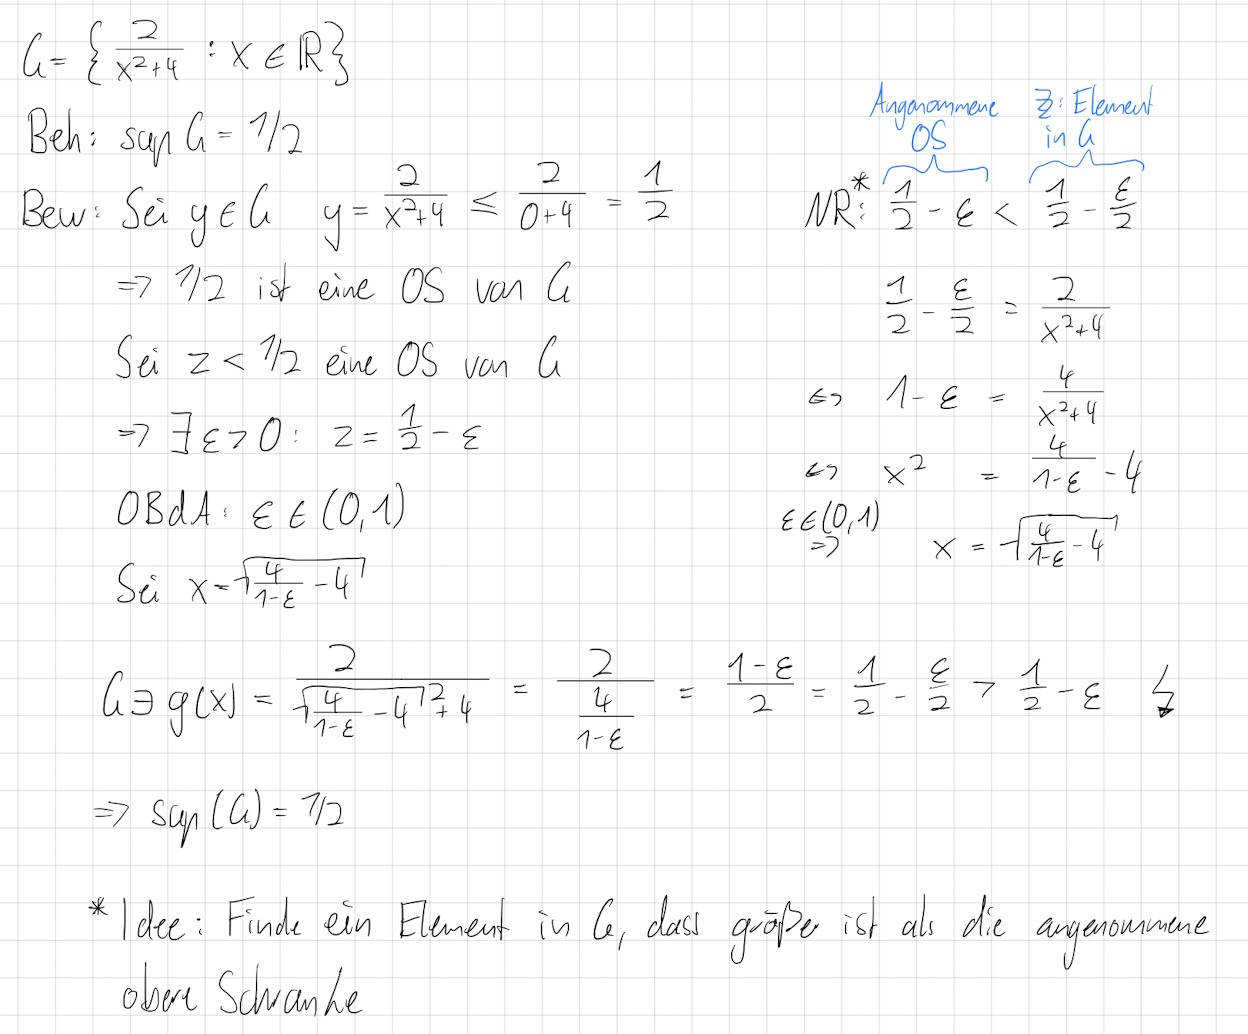 G = { 2/(x²+4) : x ∈ ℝ }
Beh: sup G = 1/2
Bew: Sei y ∈ G y = 2/(x²+4) ≤ 2/(0+4) = 1/2
=> 1/2 ist eine OS von G
Sei z < 1/2 eine OS von G
=> ∃ ε > 0 : z = 1/2 - ε
OBdA: ε ∈ (0,1)
Sei x = √(4/(1-ε) - 4)
Angenommene OS
Z: Element in G
NR*: 1/2 - ε < 1/2 - ε/2
1/2 - ε/2 = 2/(x²+4)
<=> 1 - ε = 4/(x²+4)
<=> x² = 4/(1-ε) - 4
ε ∈ (0,1) => x = √(4/(1-ε) - 4)
G ∋ g(x) = 2/(√(4/(1-ε) - 4)² + 4) = 2/(4/(1-ε)) = (1-ε)/2 = 1/2 - ε/2 > 1/2 - ε ↯
=> sup(G) = 1/2
* Idee: Finde ein Element in G, dass größer ist als die angenommene
obere Schranke